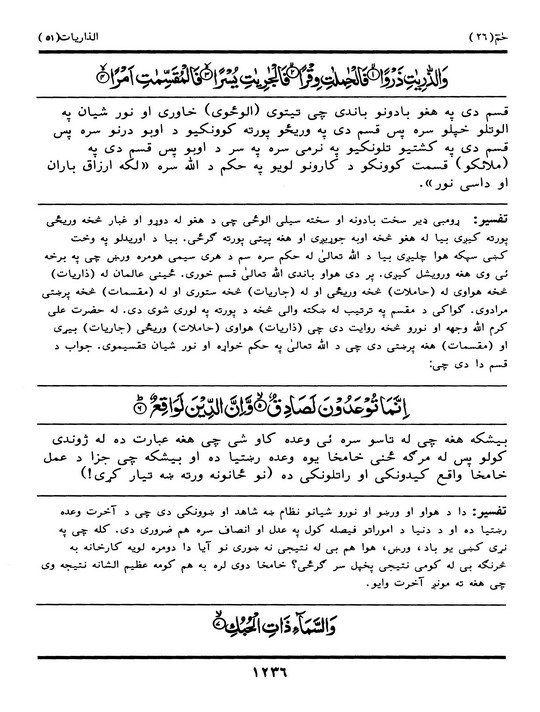 حٰمٓ(۲۶) الذاريات(۵۱)
وَالذّٰرِيٰتِ ذَرْوًا ۙ﴿۱﴾ فَالْحٰمِلٰتِ وِقْرًا ۙ﴿۲﴾ فَالْجٰرِيٰتِ يُسْرًا ۙ﴿۳﴾ فَالْمُقَسِّمٰتِ اَمْرًا ۙ﴿۴﴾
قسم دی په هغو بادونو باندی چی تیتوی (الوځوی) خاوری او نور شیان په
الوتلو خپلو سره پس قسم دی په وریځو پورته کوونکیو د اوبو درنو سره پس
قسم دی په کشتیو تلونکیو په نرمی سره په سر د اوبو پس قسم دی په
(ملائکو) قسمت کوونکو د کارونو لویو په حکم د الله سره «لکه ارزاق باران
او داسی نور».
تفسیر: ړومبی ډیر سخت بادونه او سخته سیلی الوځی چی د هغو له دوړو او غبار څخه وریځی
پورته کیږی بیا له هغو څخه اوبه جوړیږی او هغه پیتی پورته گرځی. بیا د اوریدلو په وخت
کښی سپکه هوا چلیږی بیا د الله تعالیٰ له حکم سره سم د هری سیمی هومره ورښ چی په برخه
ئی وی هغه ورویشل کیږی. پر دی هواو باندی الله تعالیٰ قسم خوری. ځینی عالمان له (ذاریات)
څخه هواوی له (حاملات) څخه وریځی او له (جاریات) څخه ستوری او له (مقسمات) څخه پرښتی
مرادوی. گواکی د مقسم په ترتیب له ښکته والی څخه د پورته په لوری شوی دی. له حضرت علی
کرم الله وجهه او نورو څخه روایت دی چی (ذاریات) هواوی (حاملات) وریځی (جاریات) بیړی
او (مقسمات) هغه پرښتی دی چی د الله تعالیٰ په حکم خواړه او نور شیان تقسیموی. جواب د
قسم دا دی چی:
اِنَّمَا تُوْعَدُوْنَ لَصَادِقٌ ۙ﴿۵﴾ وَّاِنَّ الدِّيْنَ لَوَاقِعٌ ؕ﴿۶﴾
بیشکه هغه چی له تاسو سره ئی وعده کاو شی چی هغه عبارت ده له ژوندی
کولو پس له مرگه ځنی خامخا یوه وعده رښتیا ده او بیشکه چی جزا د عمل
خامخا واقع کیدونکی او راتلونکی ده (نو ځانونه ورته ښه تیار کړی!)
تفسیر: دا د هواو او ورښو او نورو شیانو نظام ښه شاهد او ښوونکی دی چی د آخرت وعده
رښتیا ده او د دنیا د اموراتو فیصله کول په عدل او انصاف سره هم ضروری دی. کله چی په
نړی کښی یو باد، ورښ، هوا هم بی له نتیجی نه ښوری نو آیا دا دومره لویه کارخانه به
څرنگه بی له کومی نتیجی پخپل سر گرځی؟ خامخا دوی لره به هم کومه عظیم الشانه نتیجه وی
چی هغه ته مونږ آخرت وایو.
وَالسَّمَآءِ ذَاتِ الْحُبُكِ ۙ﴿۷﴾
۱۲۳۶